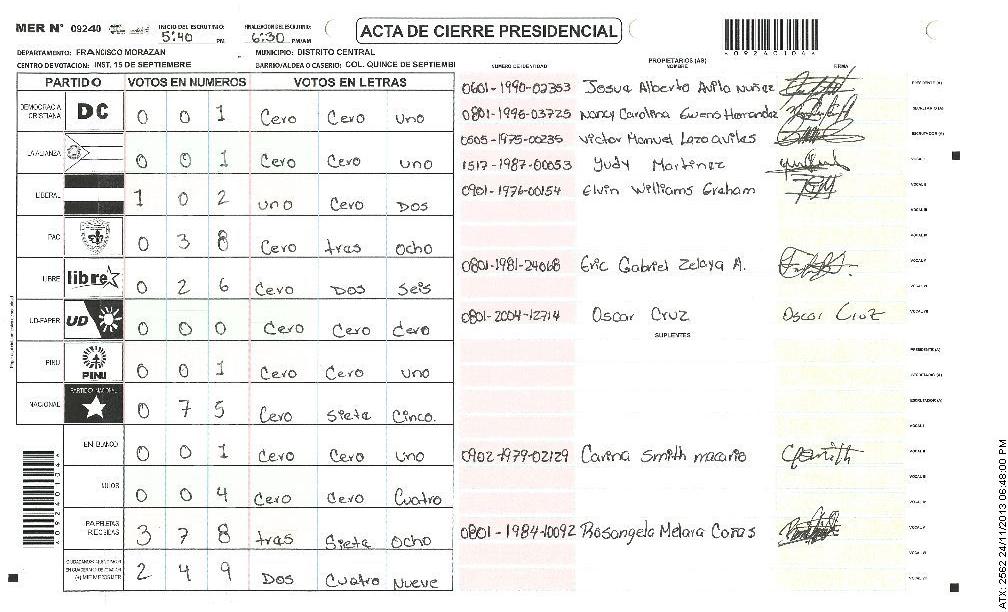 MER N° 09240
INICIO DEL ESCRUTINIO: 5:40 PM
FINALIZACION DEL ESCRUTINIO: 6:30 PM/AM
ACTA DE CIERRE PRESIDENCIAL
0924010 4 4
DEPARTAMENTO: FRANCISCO MORAZAN
MUNICIPIO: DISTRITO CENTRAL
CENTRO DE VOTACION: INST. 15 DE SEPTIEMBRE
BARRIO/ALDEA O CASERIO: COL. QUINCE DE SEPTIEMBI
PARTIDO VOTOS EN NUMEROS VOTOS EN LETRAS
DEMOCRACIA CRISTIANA DC 0 0 1 Cero Cero uno
LA ALIANZA 0 0 1 Cero Cero uno
LIBERAL 1 0 2 uno Cero Dos
PAC 0 3 8 Cero tras ocho
LIBRE libre 0 2 6 Cero Dos Seis
UD-FAPER UD 0 0 0 Cero Cero Cero
PINU PINU 0 0 1 Cero Cero uno
NACIONAL PARTIDO NACIONAL 0 7 5 Cero Siete Cinco.
EN BLANCO 0 0 1 Cero Cero uno
NULOS 0 0 4 Cero Cero Cuatro
PAPELETAS RECIBIDAS 3 7 8 tras Siete ocho
2 4 9 Dos Cuatro Nueve
NUMERO DE IDENTIDAD
PROPIETARIOS (AS)
NOMBRE
FIRMA
0601-1990-02353 Josue Alberto Avila Nuñez PRESIDENTE (A)
0801-1996-03725 Nancy Carolina Gwens Hernandez SECRETARIO (A)
0505-1975-00235 Victor Manuel Lazo aviles ESCRUTADOR (A)
1517-1987-00653 Yudy Martinez VOCAL I
0901-1976-00154 Elvin Williams Graham VOCAL II
VOCAL III
VOCAL IV
0801-1981-24068 Eric Gabriel Zelaya A. VOCAL V
VOCAL VI
0801-2004-12714 Oscar Cruz Oscar Cruz VOCAL VII
SUPLENTES
PRESIDENTE (A)
SECRETARIO (A)
ESCRUTADOR (A)
VOCAL I
0902-1979-02129 Carina Smith macario VOCAL II
VOCAL III
VOCAL IV
0801-1984-10092 Rosangela Melara Coras VOCAL V
VOCAL VI
VOCAL VII
ATX: 2562 24/11/2013 06:48:00 PM